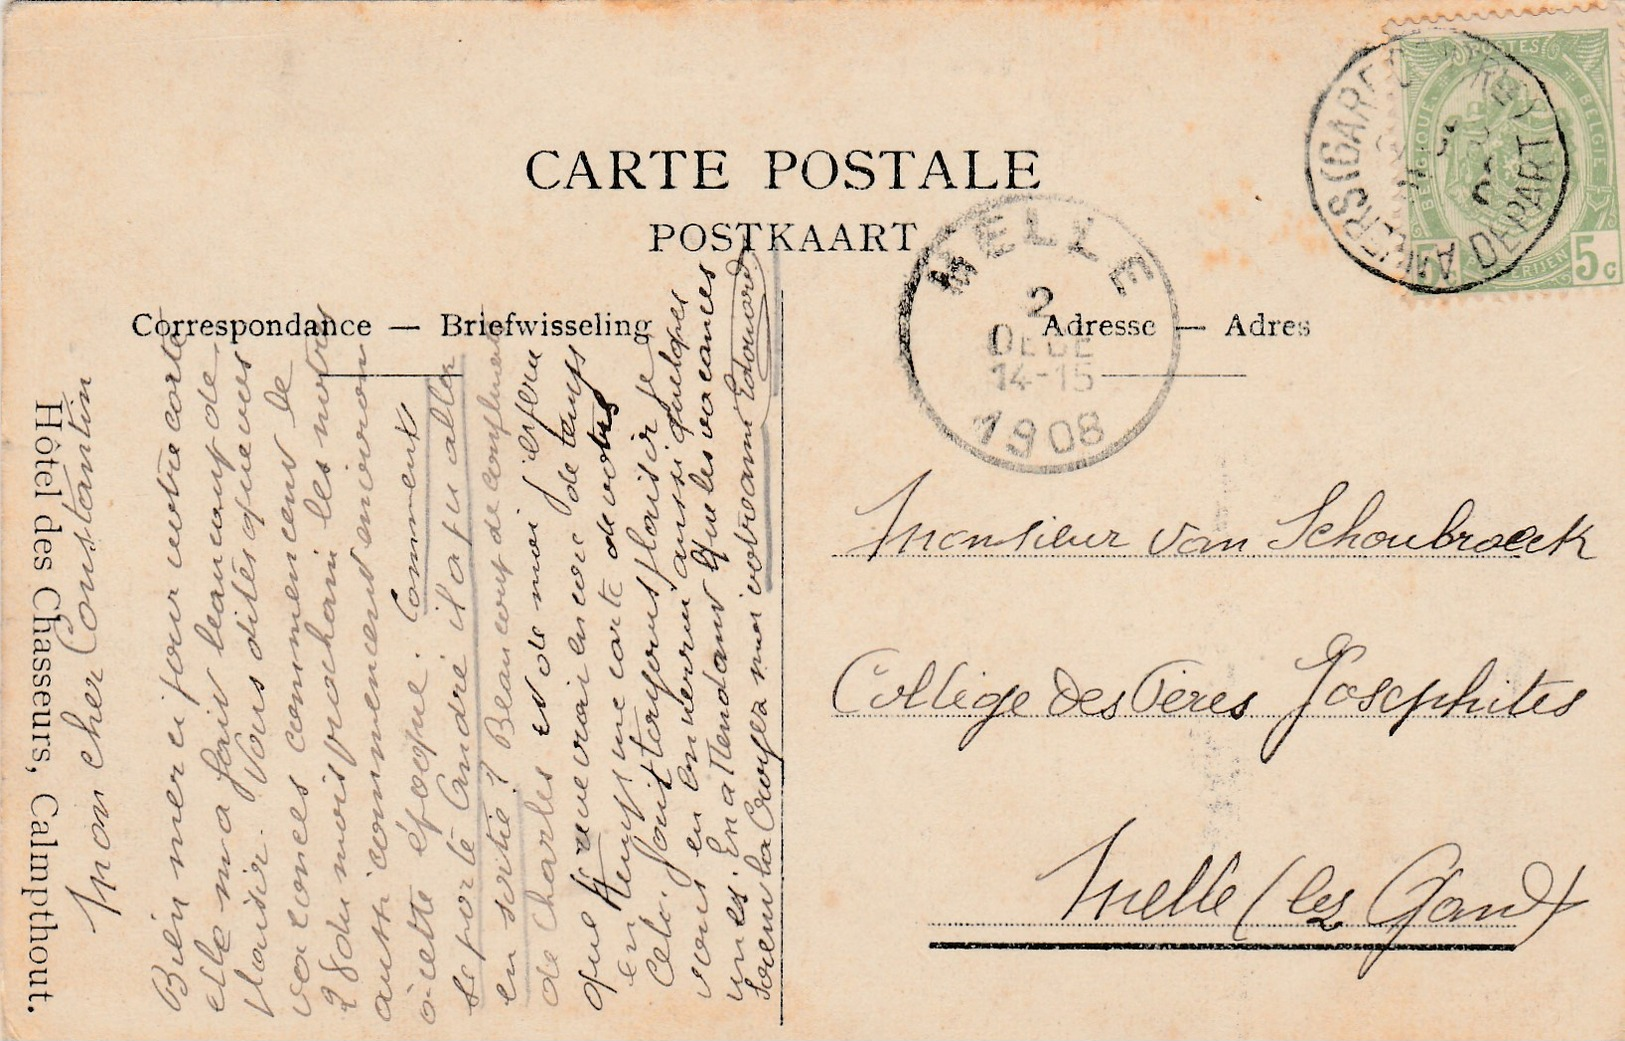 CARTE POSTALE
POSTKAART
Correspondance — Briefwisseling
Adresse — Adres
Hôtel des Chasseurs, Calmpthout.
Mon cher Constantin
Bien merci pour votre carte
elle m'a fait beaucoup de
plaisir. Vous dites que vos
vacances commencent le
28 du mois prochain les notres
aussi commencent environ
à cette époque. Comment
se porte André il a pu aller
en sortie? Beaucoup de compliments
de Charles et de moi j'espère
que je recevrai encore de temps
en temps une carte de votre
Cela fait toujours plaisir je
vous en enverrai aussi quelques
unes. En attendant que les vacances
soient là Croyez moi votre ami Edouard
Monsieur Van Schoubroeck
Collège des Pères Josephites
Melle (lez Gand)
MELLE
2
DECE
14-15
1908
ANVERS (GARE CENTRALE)
DEPART
POSTES
BELGIQUE
BELGIE
POSTERIJEN
5 5c